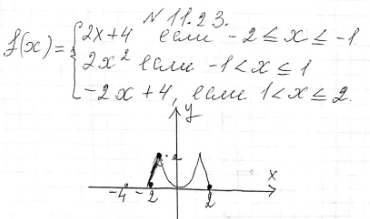 № 11.23.
f(x) = { 2x+4 если -2 ≤ x ≤ -1
2x² если -1 < x ≤ 1
-2x + 4, если 1 < x ≤ 2.
y
2
x
-4 -2 2